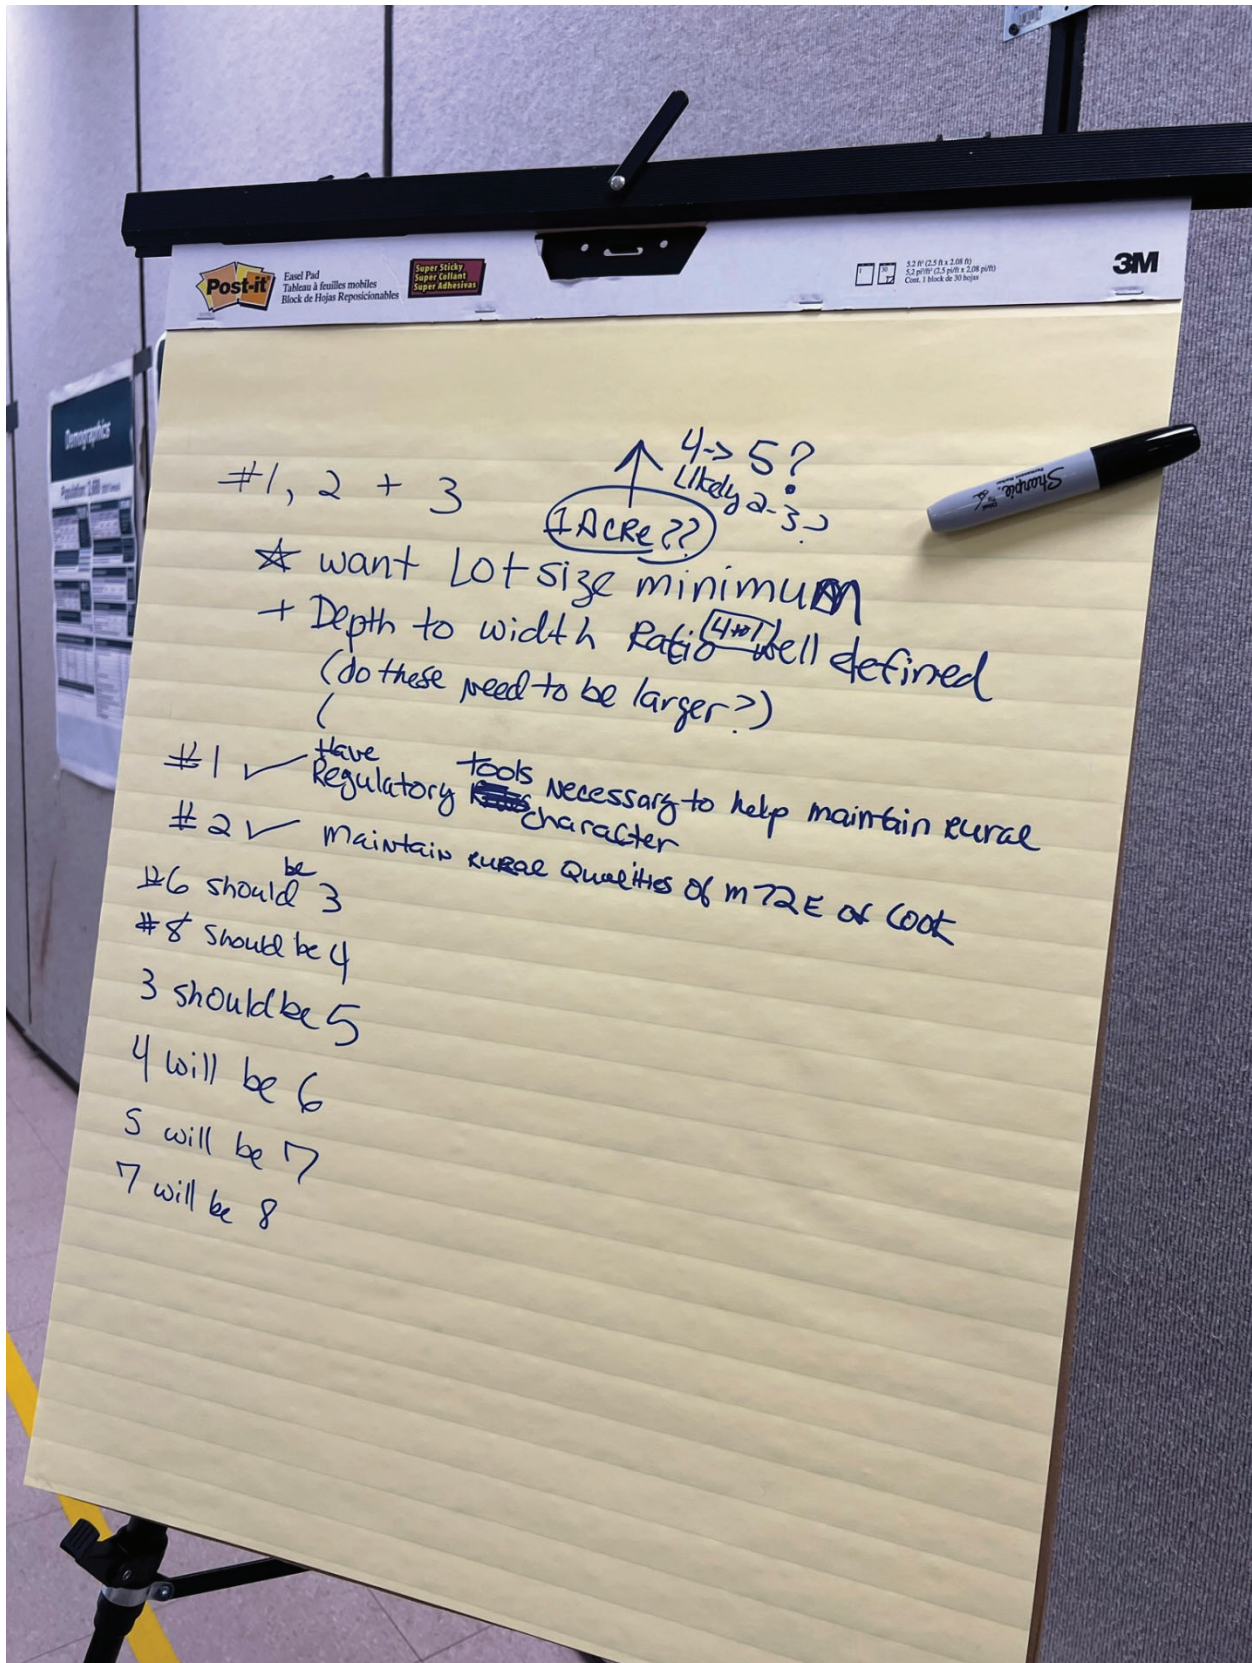 Post-it
Easel Pad
Tableau à feuilles mobiles
Block de Hojas Reposicionables
Super Sticky
Super Collant
Super Adhesivas
5.2 ft² (2.5 ft x 2.08 ft)
5,2 pi²/ft² (2,5 pi/ft x 2,08 pi/ft)
Cont. 1 block de 30 hojas
3M
Demographics
Population:
Sharpie
4 -> 5?
Likely 2-3?
#1, 2 + 3
1 Acre??
☆ want Lot size minimum
+ Depth to width Ratio 4 to 1 well defined
(do these need to be larger?)
(
#1 ✓ Have Regulatory tools necessary to help maintain rural
character
#2 ✓ maintain rural Qualities of M72E of Cook
#6 should be 3
#8 should be 4
3 should be 5
4 will be 6
5 will be 7
7 will be 8